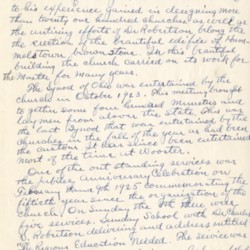 to his experience gained in designing more
than twenty one hundred churches as well as
the untiring efforts of Dr Robertson belongs
the erection of the beautiful edifice of Hum-
melstown brownstone. In this beautiful
building the church carried on its work for
the Master for many years.
The Synod of Ohio was entertained by the
church in October 1921. This meeting brought
together some four hundred ministers and
lay men from all over the state. This was
the last Synod that was entertained by the
churches in the fall of the year as had been
the custom. It has since been entertained
most of the time at Wooster.
One of the out standing services was
the Jubilee Anniversary Celebration on
March 9th 1925 commemorating the
fiftieth year since the organization of the
church. On Sunday the 8th there were
five services. Sunday School with
Robertson delivering and address entitled
The Religious Education Needed. The service was